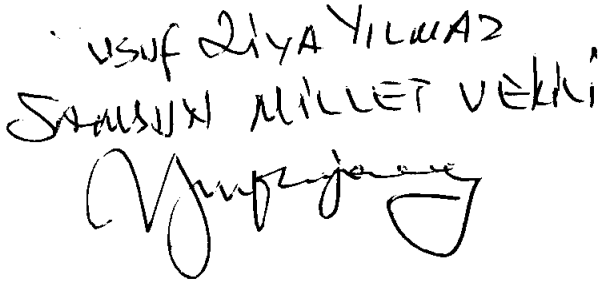 Yusuf Ziya YILMAZ
SAMSUN MİLLET VEKİLİ